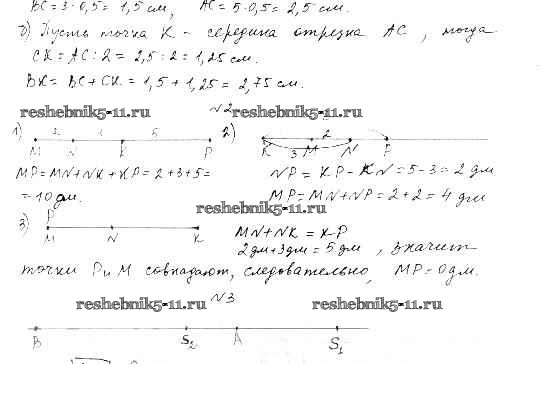 BC = 3·0,5 = 1,5 см, AC = 5·0,5 = 2,5 см.
б) Пусть точка K - середина отрезка AC, тогда
CK = AC : 2 = 2,5 : 2 = 1,25 см.
BK = BC + CK = 1,5 + 1,25 = 2,75 см.
reshebnik5-11.ru №2 reshebnik5-11.ru
1) 2 5 2) 2
M N K P K M N P
3
MP = MN + NK + KP = 2+3+5= NP = KP - KN = 5-3 = 2 дм
= 10 дм. MP = MN + NP = 2+2 = 4 дм
reshebnik5-11.ru
3) P
M N K
MN + NK = KP
2дм + 3дм = 5дм, значит
точки P и M совпадают, следовательно, MP = 0 дм.
№3
reshebnik5-11.ru reshebnik5-11.ru
B S2 A S1